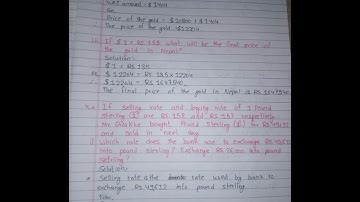 VAT amount = $ 1404
So,
Price of the gold = $ 10800 + $ 1404
The price of the gold = $ 12204
iii. If $ 1 = RS 135 what will be the final price of
the gold in Nepal?
Solution:
$ 1 = RS 135
or, $ 12204 = RS 135 × 12204
∴ $ 12204 = RS 1647540
The final price of the gold in Nepal is RS 1647540
If selling rate and buying rate of 1 Pound
sterling (£) are RS 158 and RS 151 respectively.
Mr. bought Pound sterling (£) for RS 49612
and sold in next day.
i) Which rate does the bank use to exchange RS 49612
into pound sterling? Exchange RS into pound
sterling?
Solution:
Selling rate is the rate used by bank to
exchange RS 49612 into pound sterling.
Now,